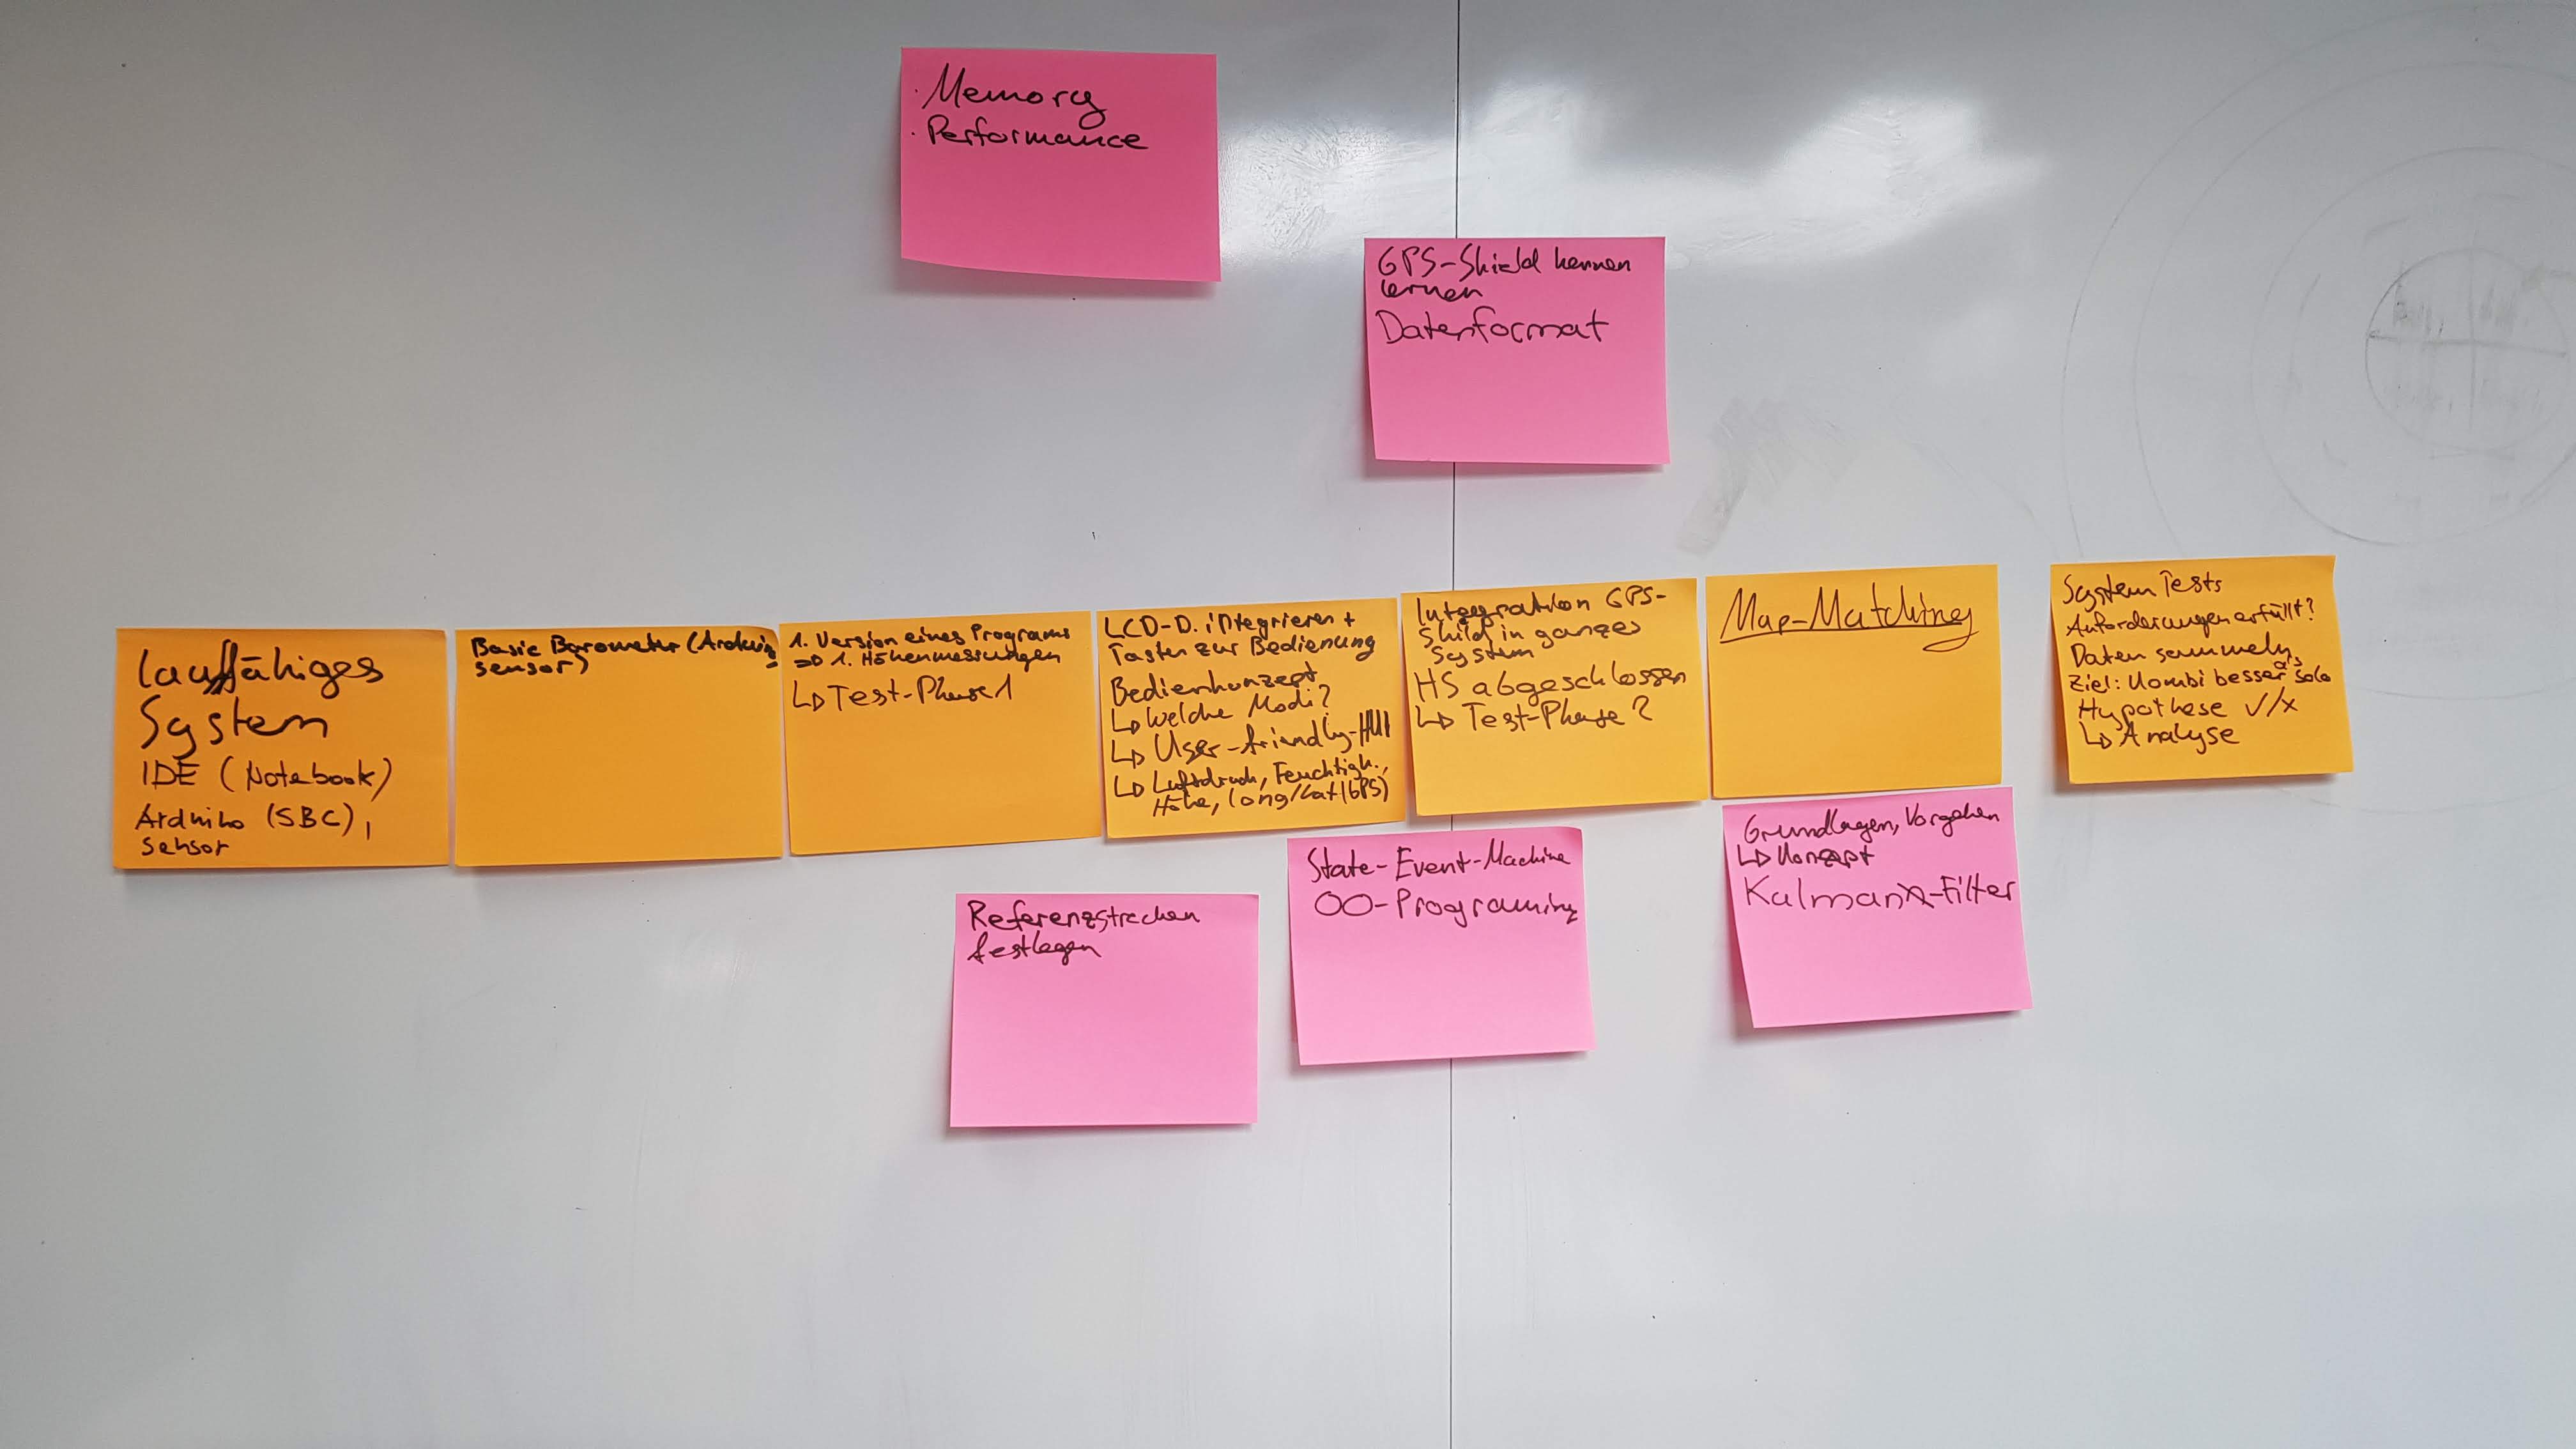 · Memory
· Performance
GPS-Shield kennen
lernen
Datenformat
lauffähiges
System
IDE (Notebook)
Arduino (SBC),
Sensor
Basic Barometer (Arduino
sensor)
1. Version eines Programs
=> 1. Höhenmessungen
↳ Test-Phase 1
LCD-D. integrieren +
Tasten zur Bedienung
Bedienkonzept
↳ Welche Modi?
↳ User-friendly-HMI
↳ Luftdruck, Feuchtigk.,
Höhe, long/Lat (GPS)
Integration GPS-
Shild in ganzes
System
HS abgeschlossen
↳ Test-Phase 2
Map-Matching
System Tests
Anforderungen erfüllt?
Daten sammeln
Ziel: Kombi besser als solo
Hypothese ✓/x
↳ Analyse
Referenzstrecken
festlegen
State-Event-Machine
OO-Programing
Grundlagen, Vorgehen
↳ Konzept
Kalman-Filter